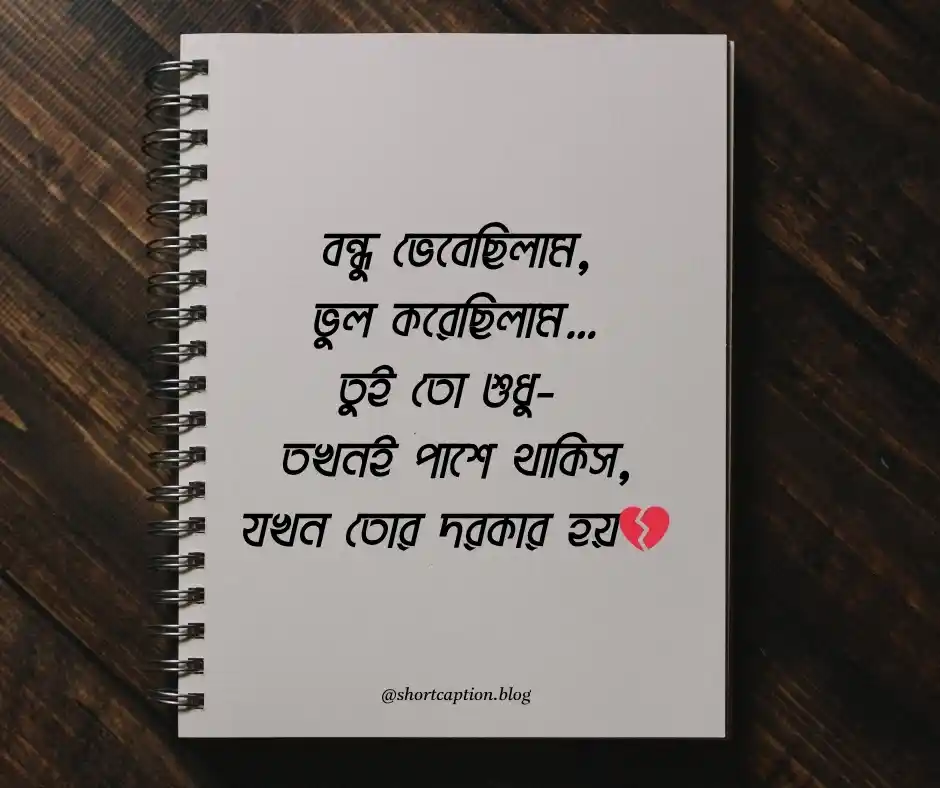 বন্ধু ভেবেছিলাম,
ভুল করেছিলাম...
তুই তো শুধু-
তখনই পাশে থাকিস,
যখন তোর দরকার হয়💔
@shortcaption.blog